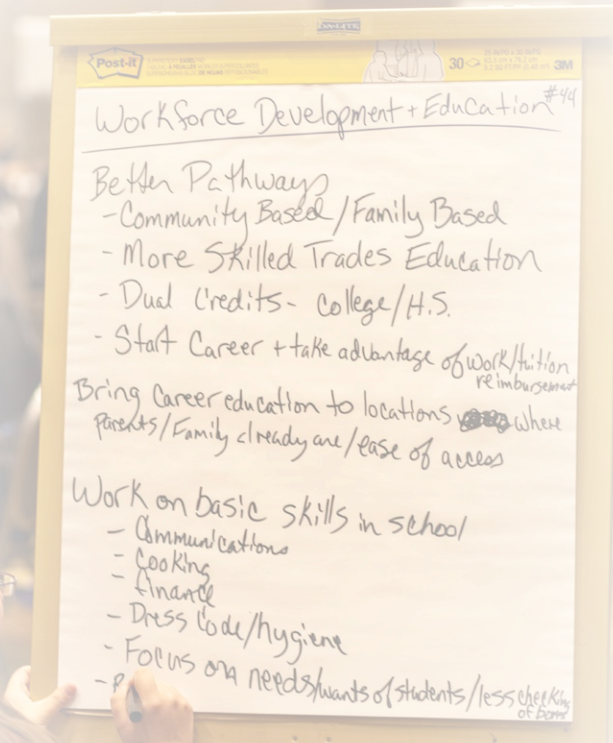 Post-it
30
3M
Workforce Development + Education #44
Better Pathways
- Community Based / Family Based
- More Skilled Trades Education
- Dual Credits - College/H.S.
- Start Career + take advantage of work/tuition
reimbursement
Bring Career education to locations where
parents/Family already are/ease of access
Work on basic skills in school
- Communications
- Cooking
- finance
- Dress Code/hygiene
- Focus on needs/wants of students/less checking
of boxes
-